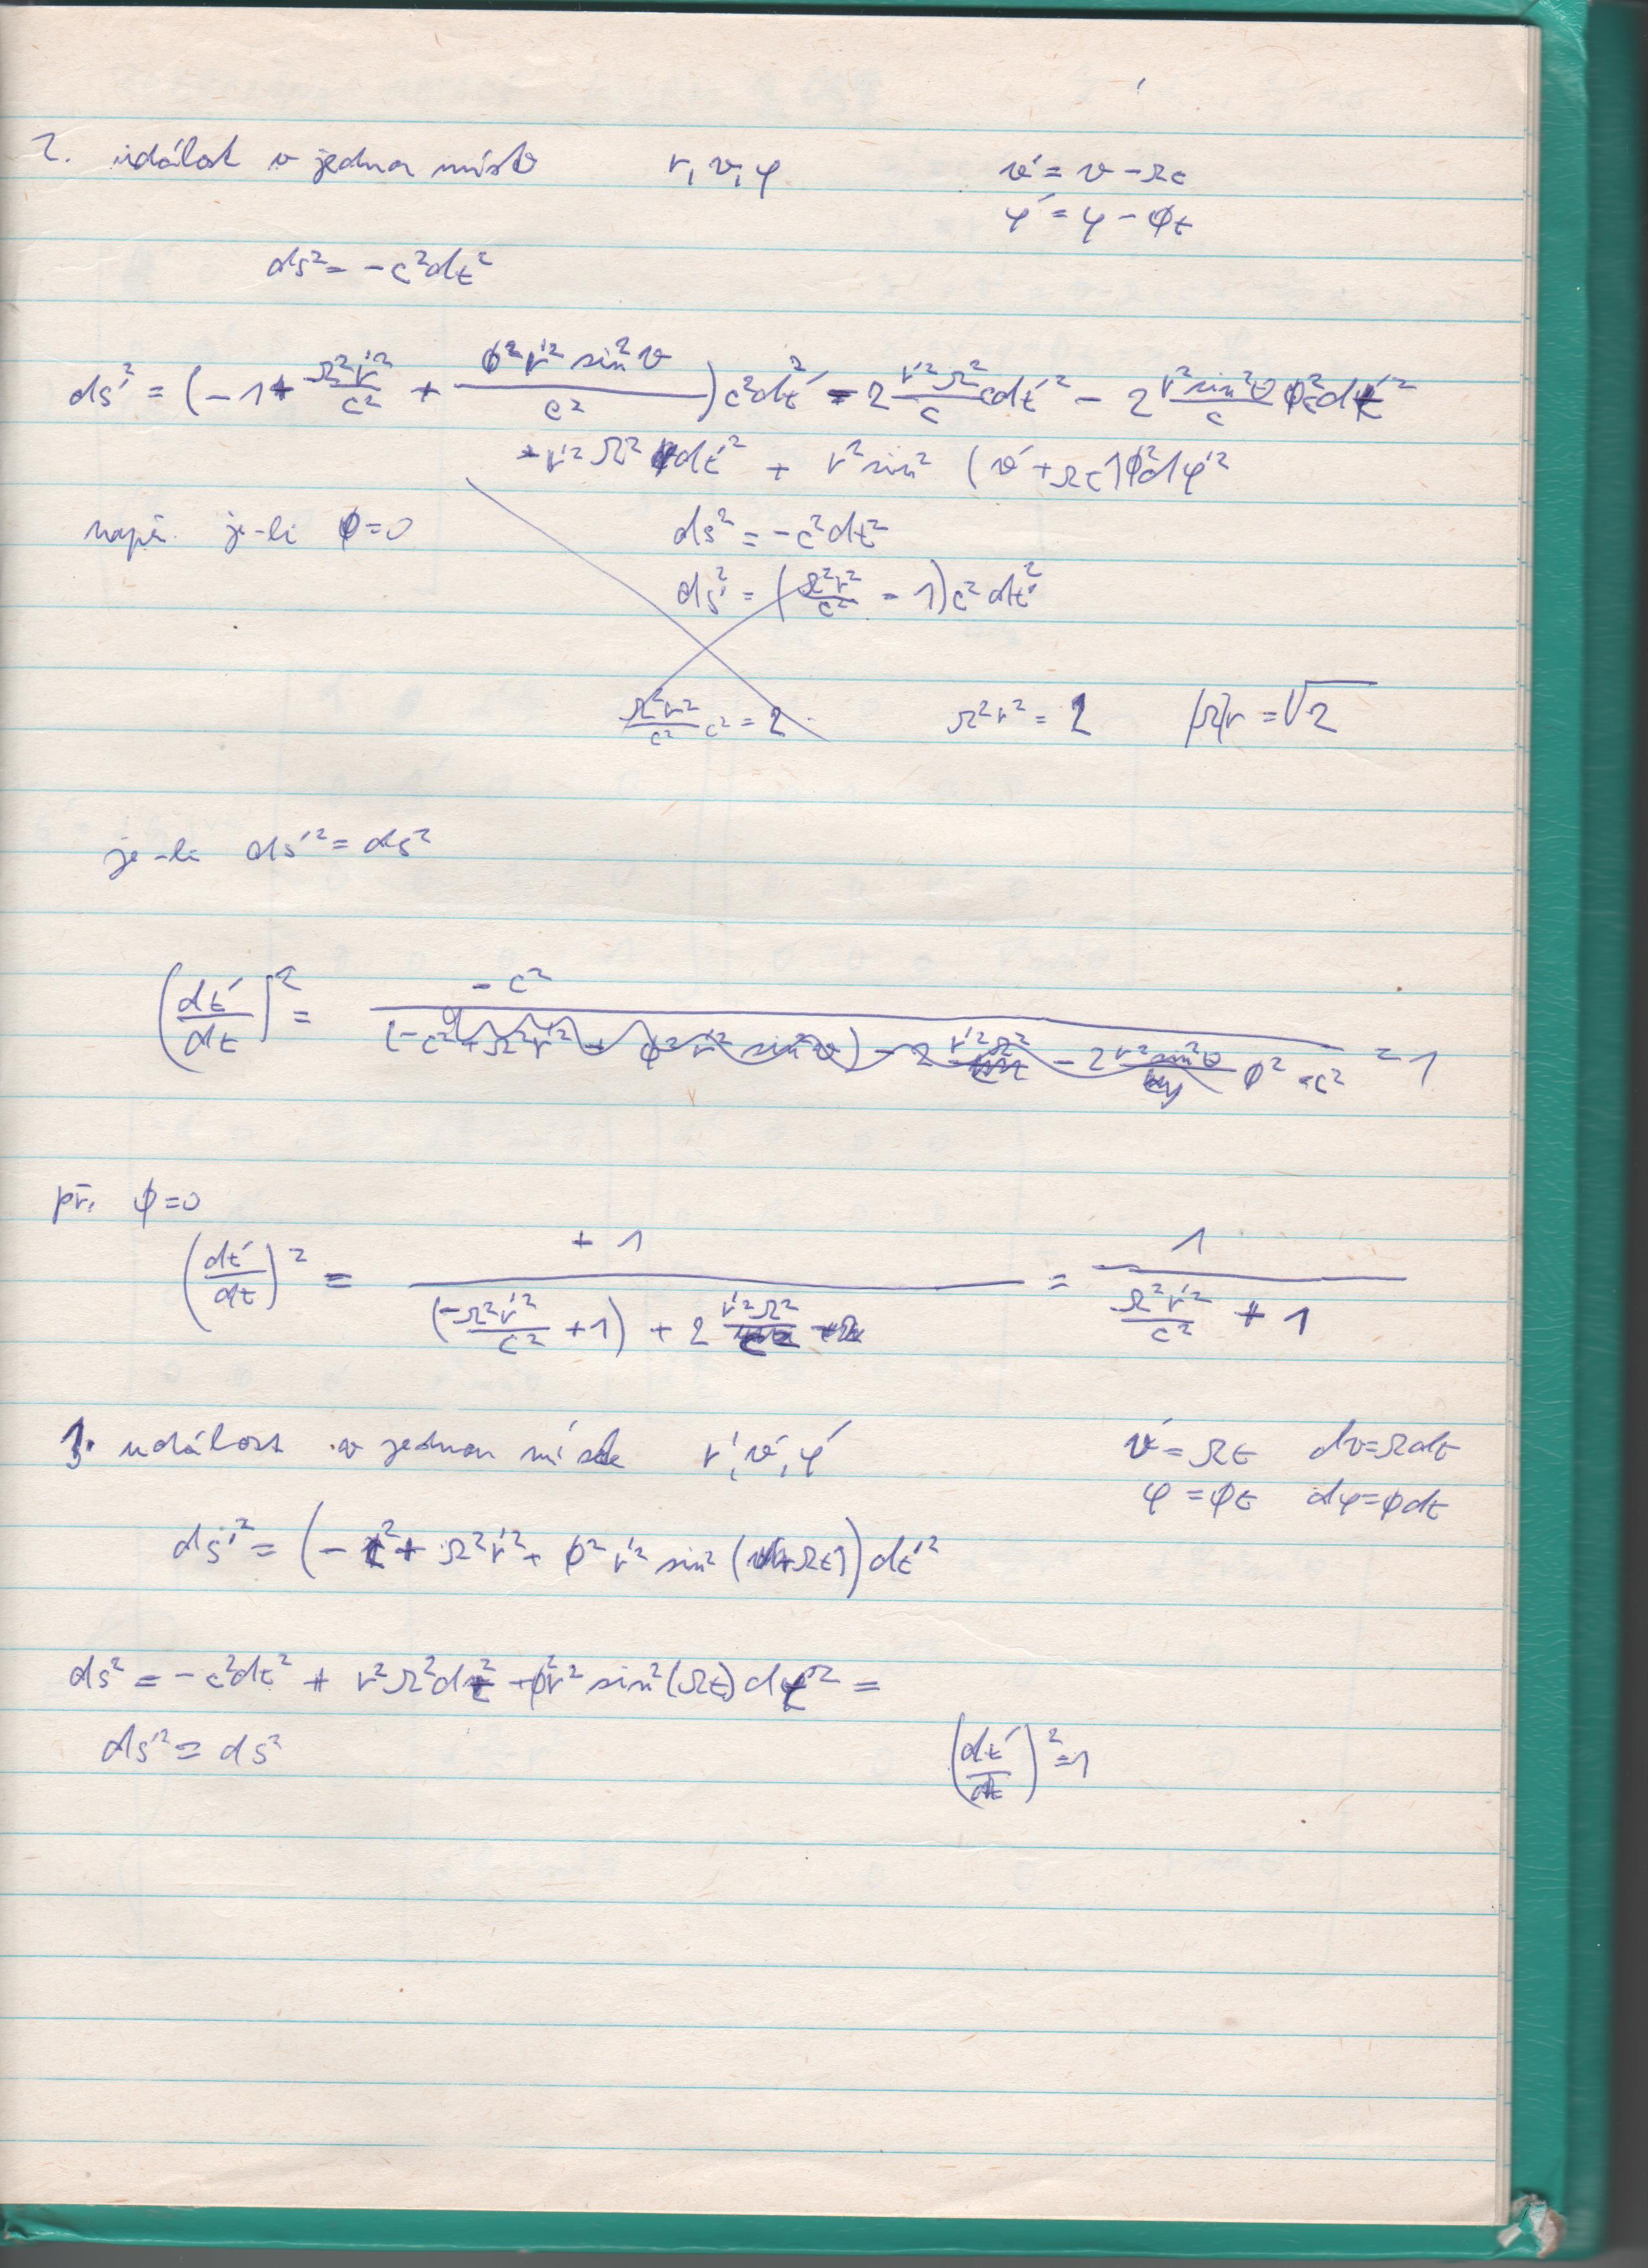 2. událost v jednom místě r, ϑ, φ ϑ' = ϑ - Ωt
φ' = φ - ϕt
ds² = -c²dt²
ds'² = (-1 + Ω²r'²/c² + ϕ²r'² sin²ϑ/c²) c²dt'² - 2 r'²Ω²/c cdt'² - 2 r²sin²ϑ/c ϕ²cdt'²
+ r'²Ω² dt'² + r² sin² (ϑ' + Ωt') ϕ²dφ'²
např. je-li ϕ=0 ds² = -c²dt²
ds'² = (Ω²r²/c² - 1) c² dt'²
Ω²r²/c² c² = 2 Ω²r² = 2 |Ω|r = √2
je-li ds'² = ds²
(dt'/dt)² = -c² / ϕ² -c² = 1
při ϕ=0
(dt'/dt)² = +1 / ((-Ω²r'²/c² + 1) + 2 r'²Ω²/c²) = 1 / (Ω²r'²/c² + 1)
1. událost v jednom místě r', ϑ', φ' ϑ' = Ωt dϑ = Ωdt
φ = ϕt dφ = ϕdt
ds'² = (-c² + Ω²r'² + ϕ² r'² sin² (Ωt)) dt'²
ds² = -c²dt² + r²Ω²dt² + ϕ²r² sin²(Ωt) dt² =
ds'² = ds² (dt'/dt)² = 1